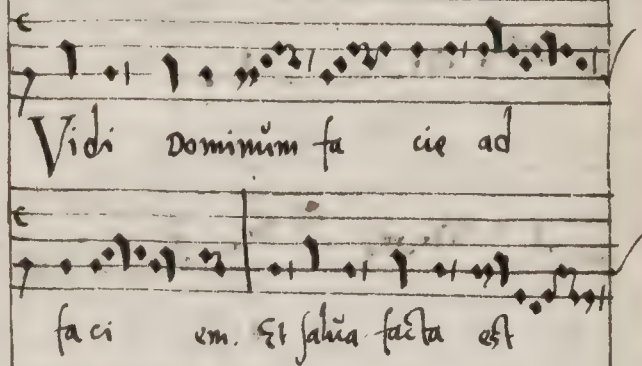 Vidi Dominũm fa cie ad
fa ci em. Et salũa facta est